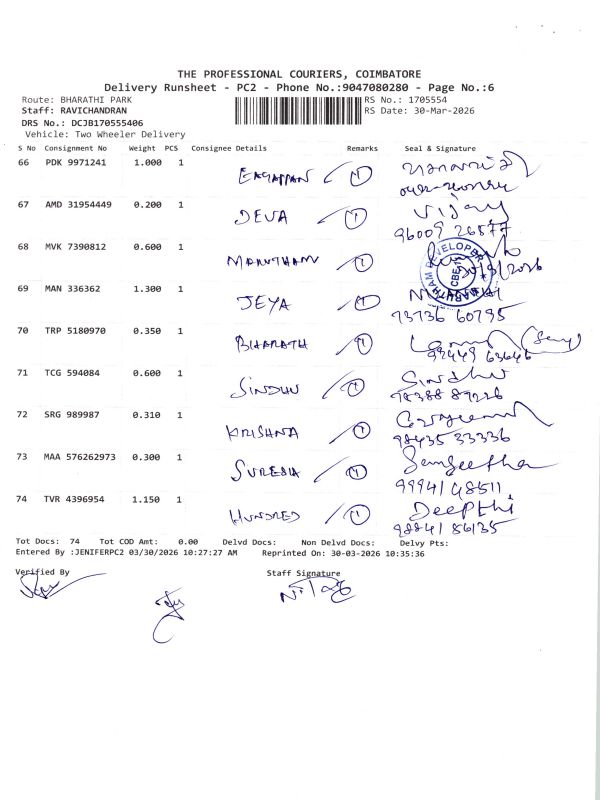 THE PROFESSIONAL COURIERS, COIMBATORE
Delivery Runsheet - PC2 - Phone No.:9047080280 - Page No.:6
Route: BHARATHI PARK RS No.: 1705554
Staff: RAVICHANDRAN RS Date: 30-Mar-2026
DRS No.: DCJB170555406
Vehicle: Two Wheeler Delivery
S No Consignment No Weight PCS Consignee Details Remarks Seal & Signature
66 PDK 9971241 1.000 1 1
67 AMD 31954449 0.200 1 DEVA 1 Vijay
96009 26577
68 MVK 7390812 0.600 1 MARUTHAM 1
MARUTHAM DEVELOPER
69 MAN 336362 1.300 1 JEYA 1
73736 60795
70 TRP 5180970 0.350 1 BHARATH 1
99449 63646
71 TCG 594084 0.600 1 SINDHU 1 Sindhu
98388 89226
72 SRG 989987 0.310 1 KRISHNA 1
98435 33336
73 MAA 576262973 0.300 1 SURESH 1 Sangeetha
99941 48511
74 TVR 4396954 1.150 1 HUNDRED 1 Deepthi
98841 86135
Tot Docs: 74 Tot COD Amt: 0.00 Delvd Docs: Non Delvd Docs: Delvy Pts:
Entered By :JENIFERPC2 03/30/2026 10:27:27 AM Reprinted On: 30-03-2026 10:35:36
Verified By Staff Signature